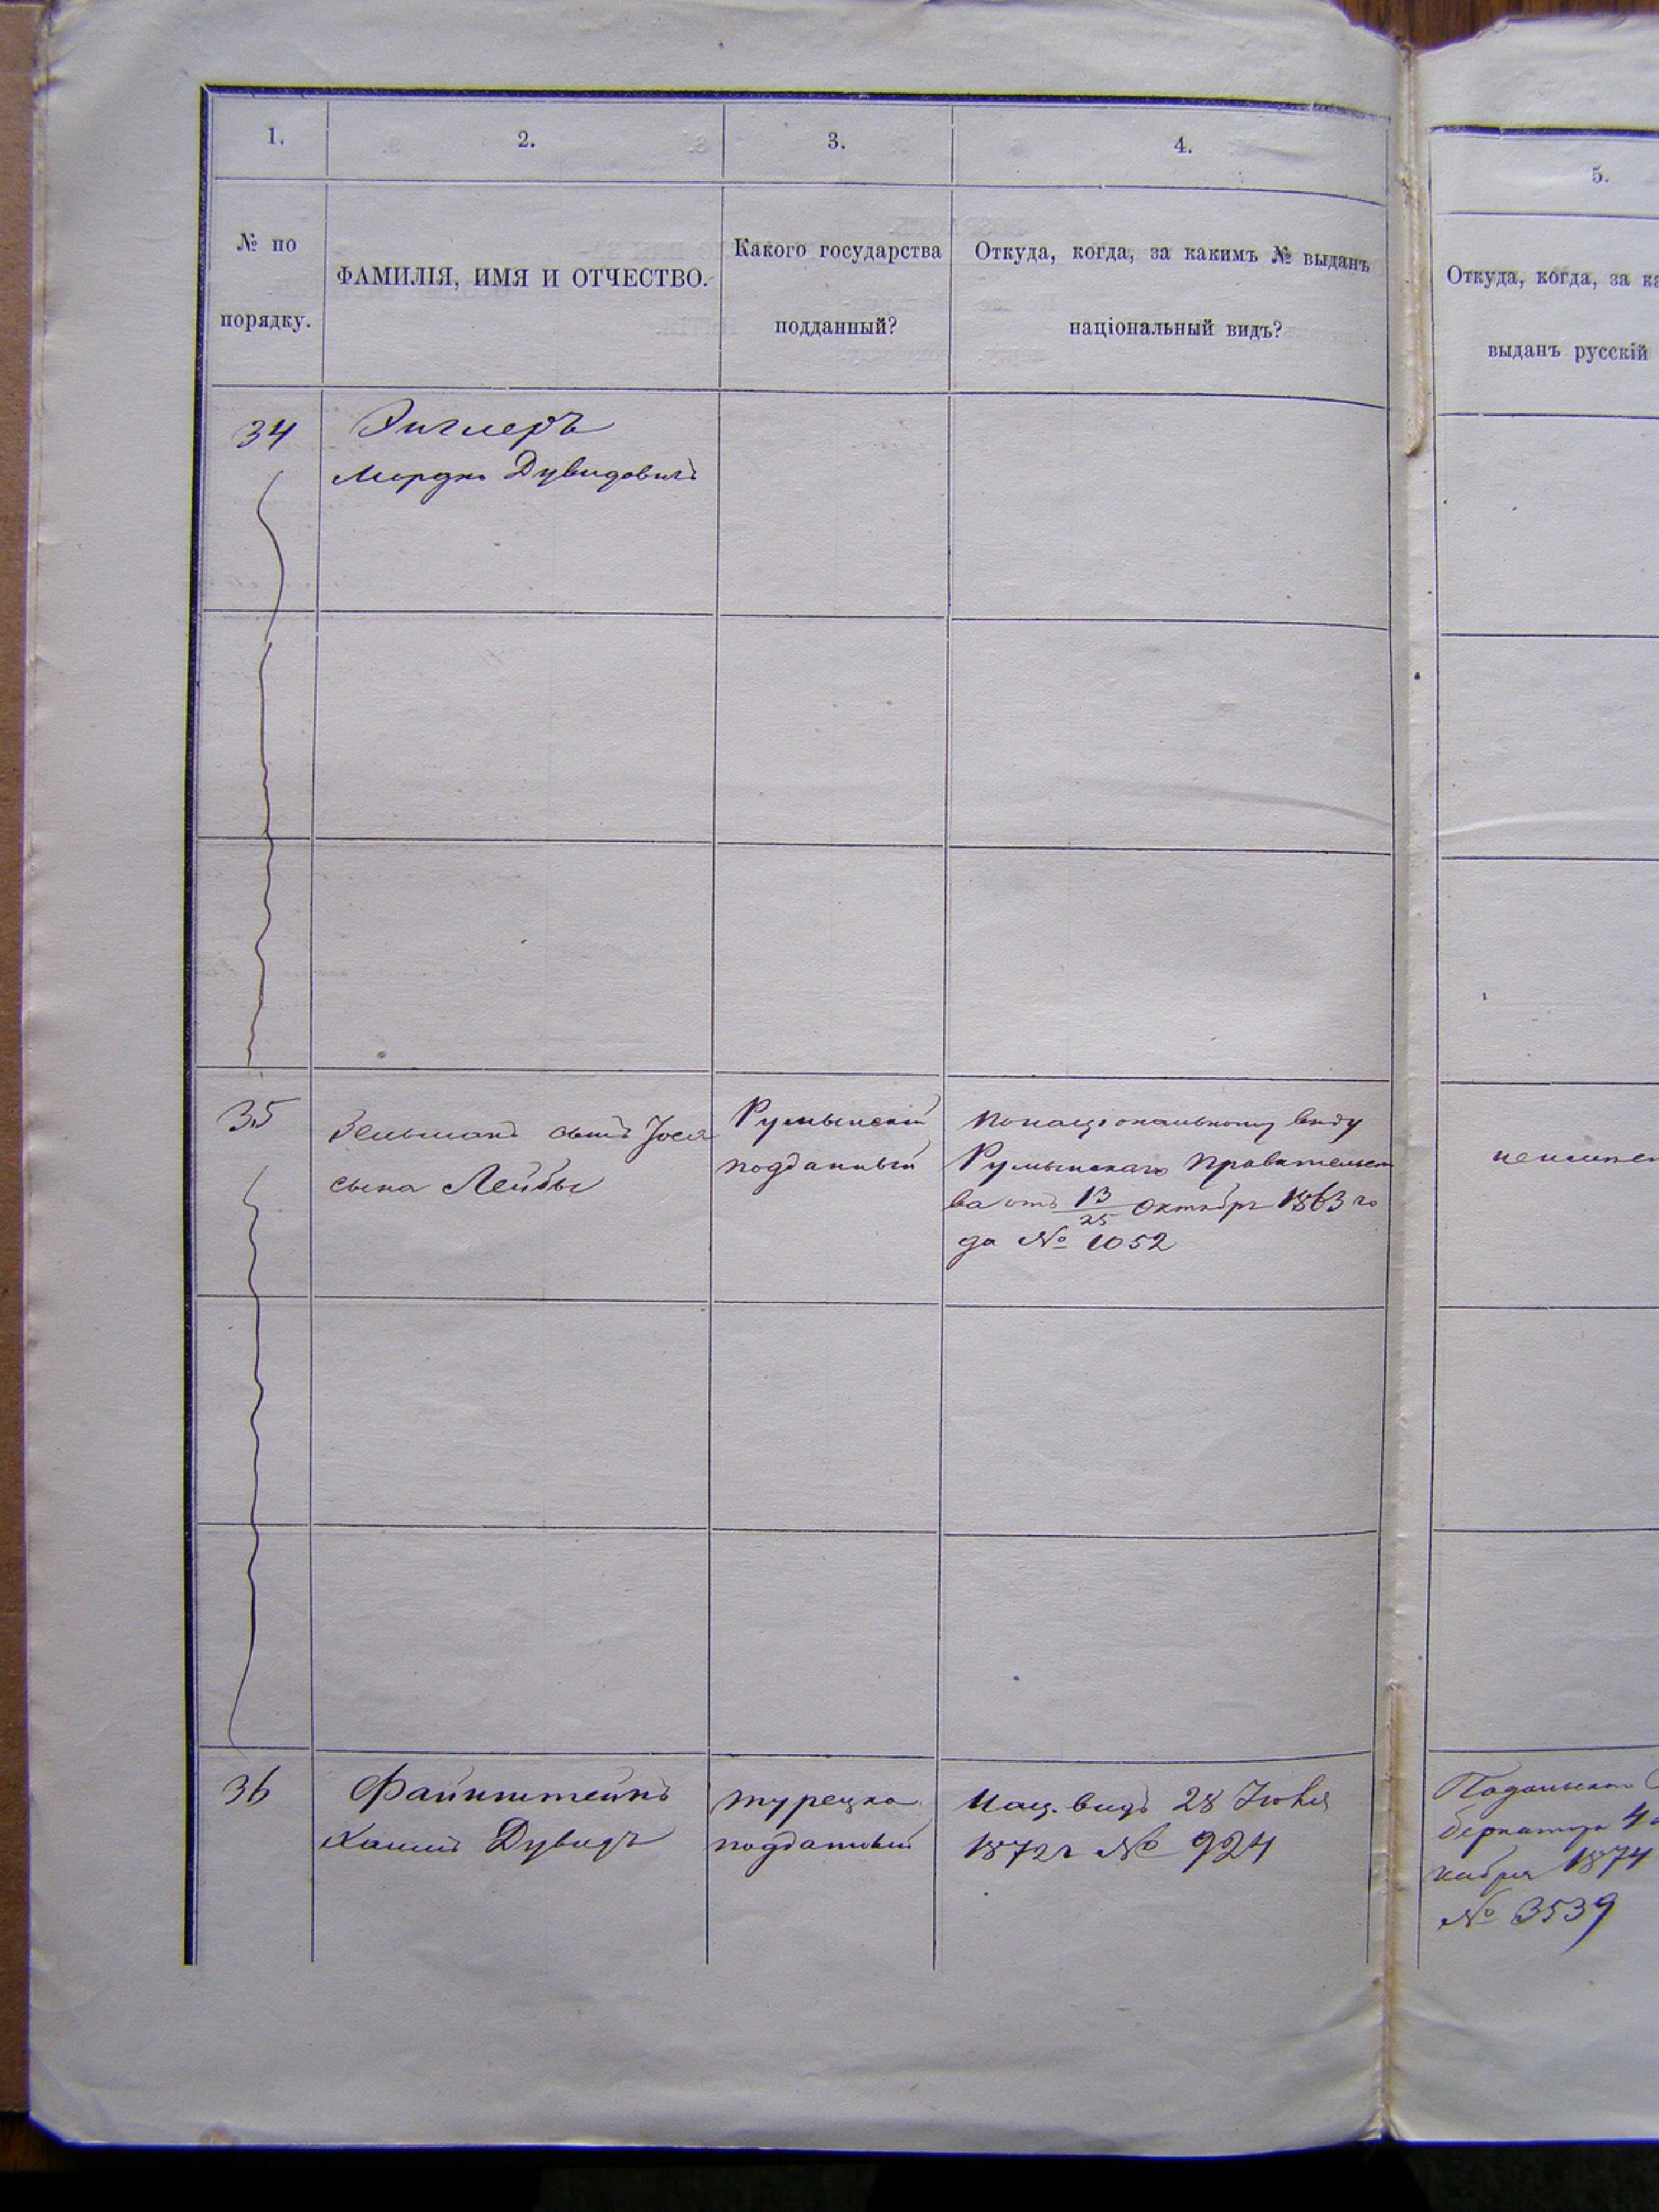 1.
2.
3.
4.
5.
№ по
порядку.
ФАМИЛІЯ, ИМЯ И ОТЧЕСТВО.
Какого государства
подданный?
Откуда, когда, за какимъ № выданъ
національный видъ?
Откуда, когда, за ка
выданъ русскій
34
Энглеръ
Мордко Дувидовичъ
35
Зельманъ сынъ Іося
сына Лейбы
Румынскій
подданный
по національному виду
Румынскаго Правительст
ва отъ 13/25 Октября 1863 го
да № 1052
36
Файнштейнъ
Хаимъ Дувидъ
турецко
подданный
Нац. видъ 28 Іюня
1872 г № 924
Подольскаго
бернатора 4
1874
№ 3539